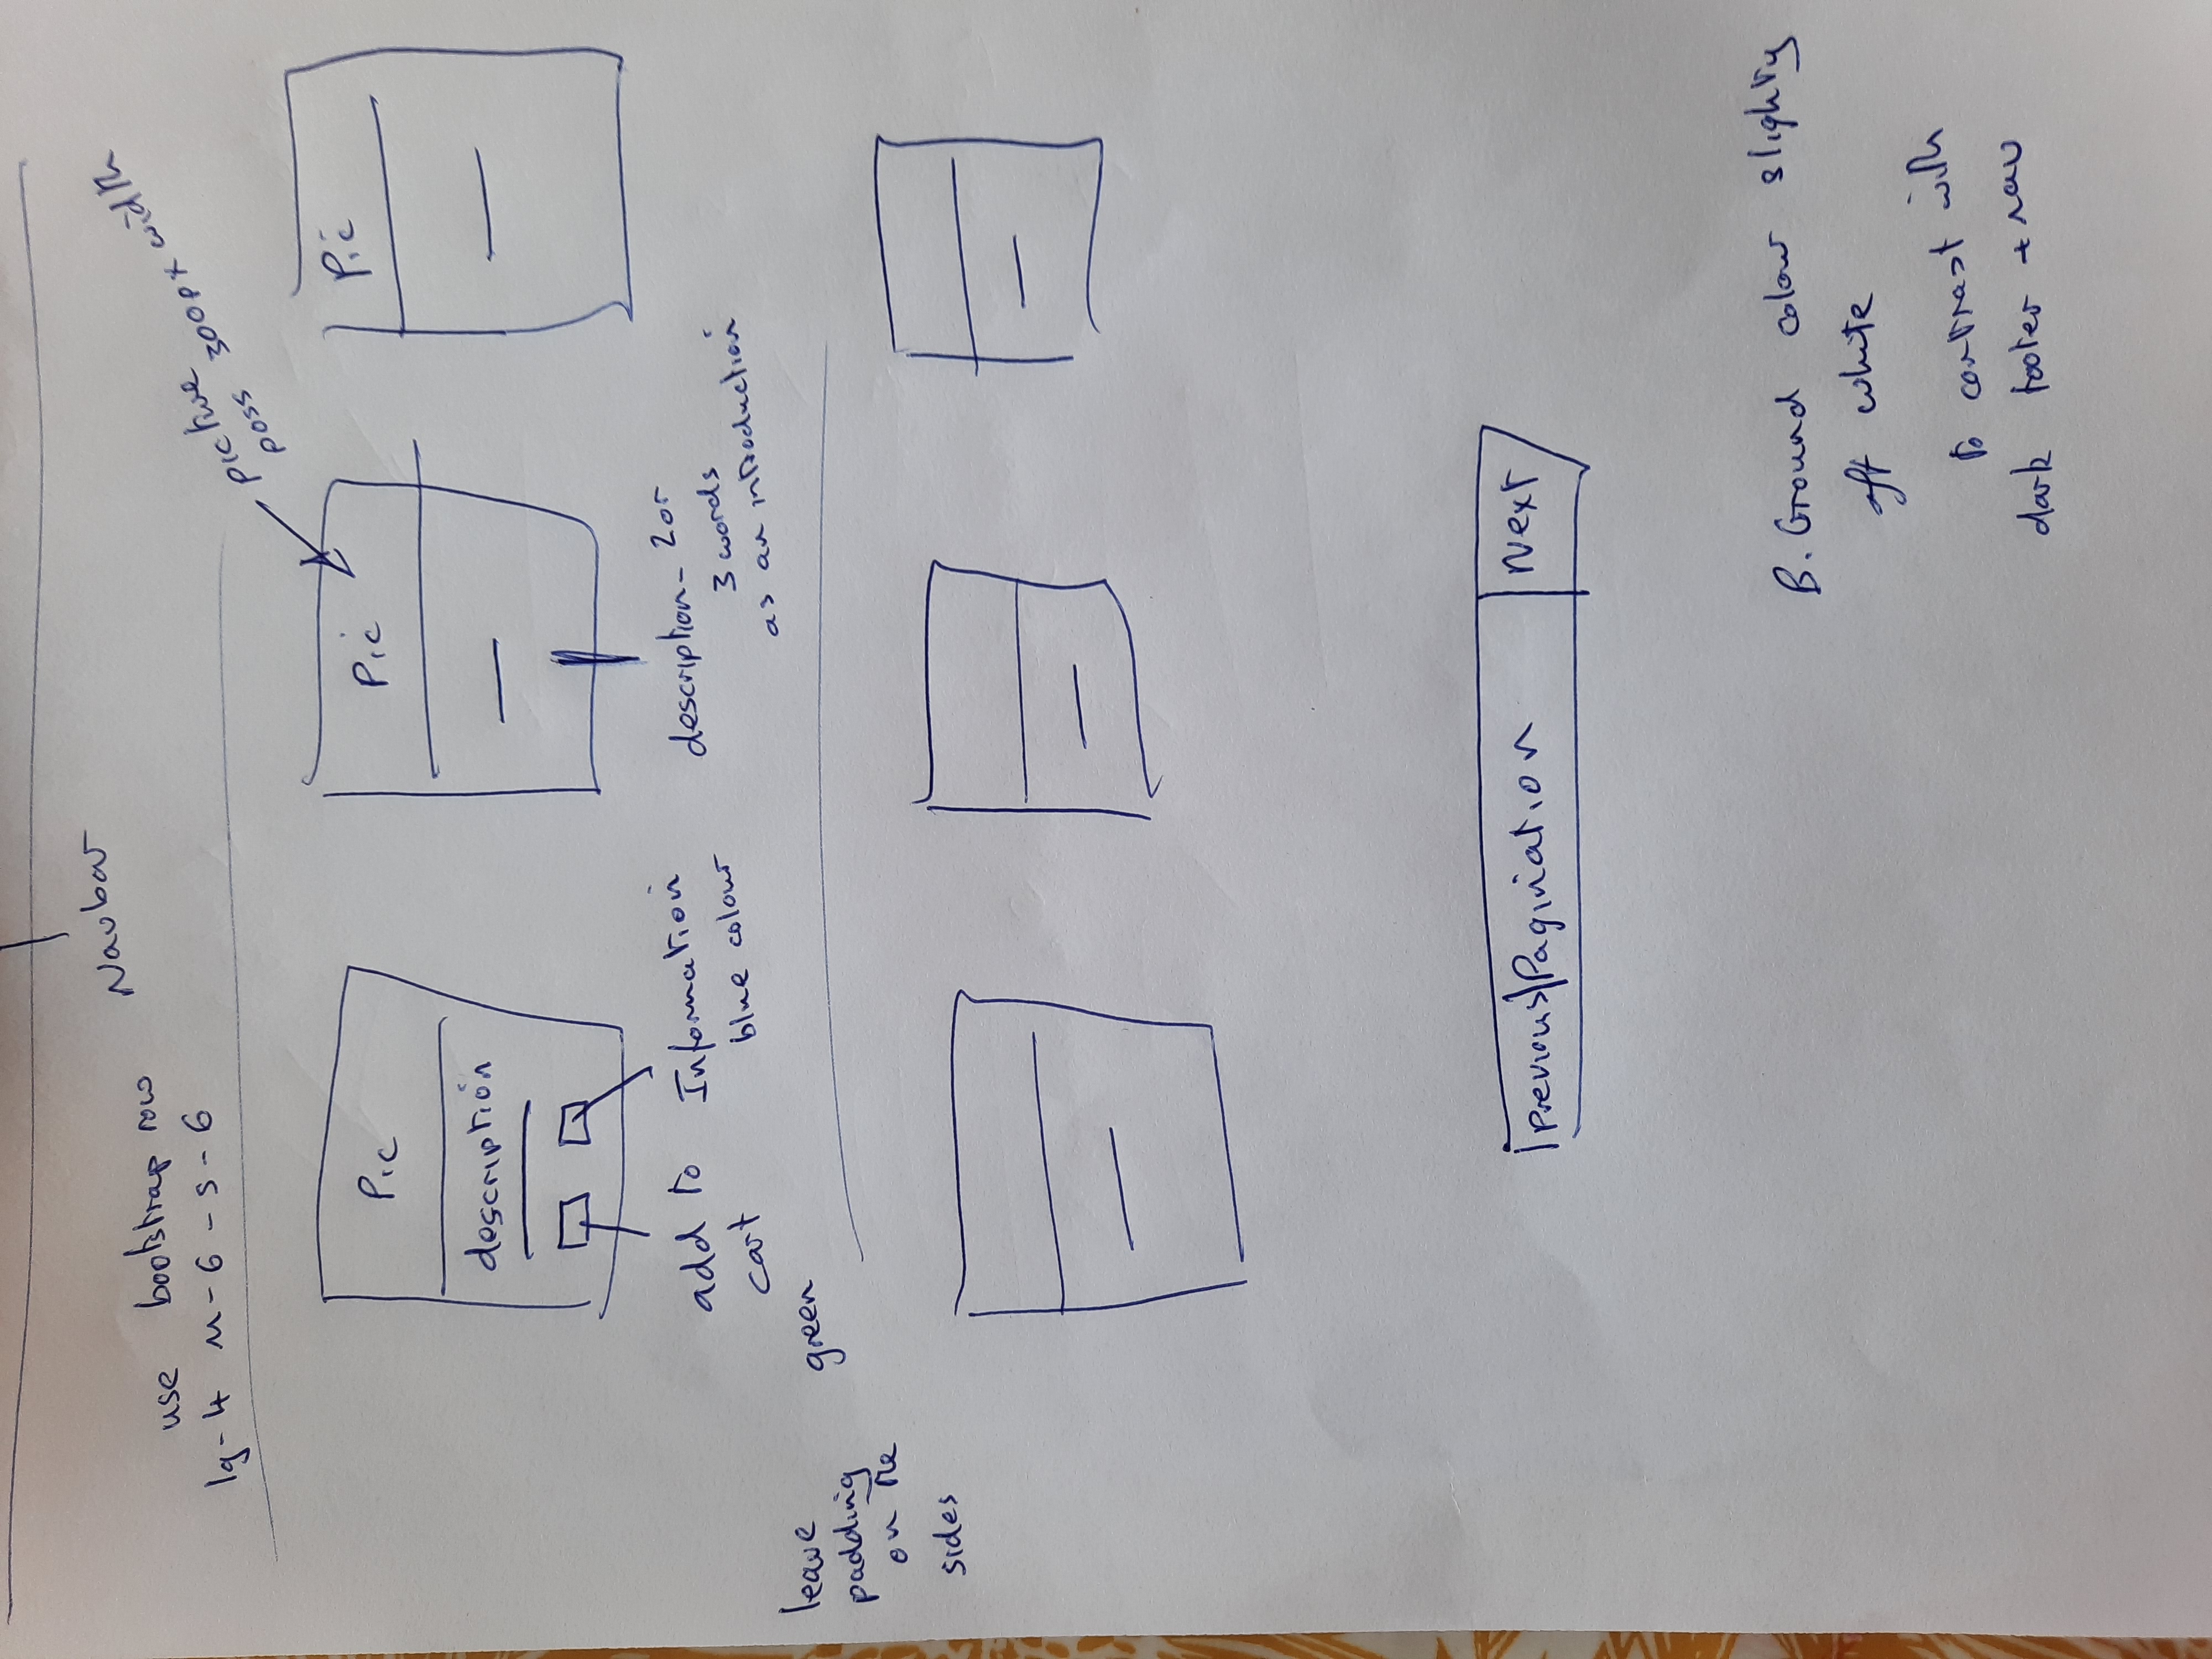 Navbar
use bootstrap row
lg-4 m-6-s-6
picture
poss 300px width
Pic
Pic
Pic
description
add to
cart
green
Information
blue colour
description - 2 or
3 words
as an introduction
leave
padding
on the
sides
Previous Pagination Next
B. Ground colour slighty
off white
to contrast with
dark footer + nav